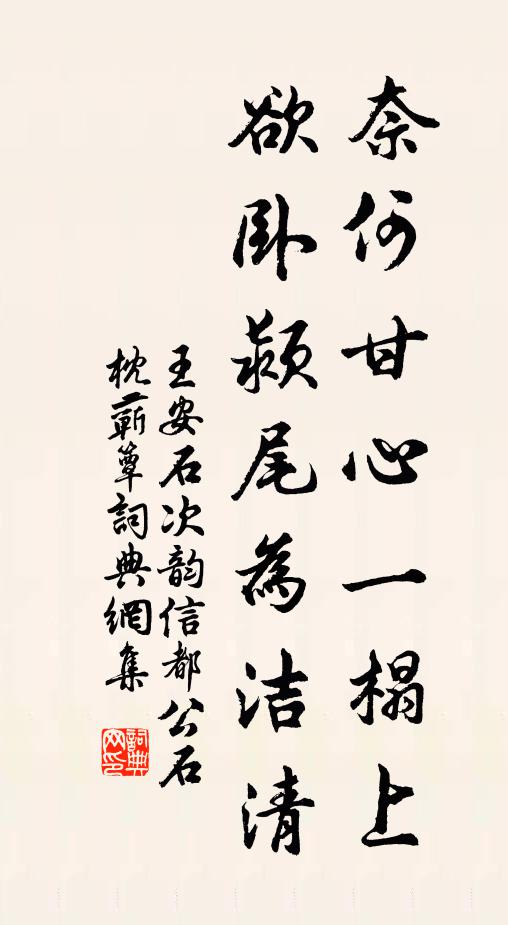 奈何甘心一榻上
欲卧颍尾為洁清
王安石次韵信都公石
枕蕲簟詞典網集
詞典
网印